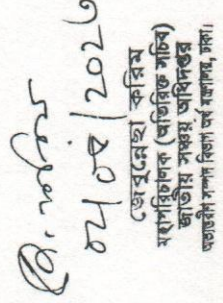 জেবুন্নেছা করিম
মহাপরিচালক (অতিরিক্ত সচিব)
জাতীয় সঞ্চয় অধিদপ্তর
অভ্যন্তরীণ সম্পদ বিভাগ অর্থ মন্ত্রণালয়, ঢাকা।